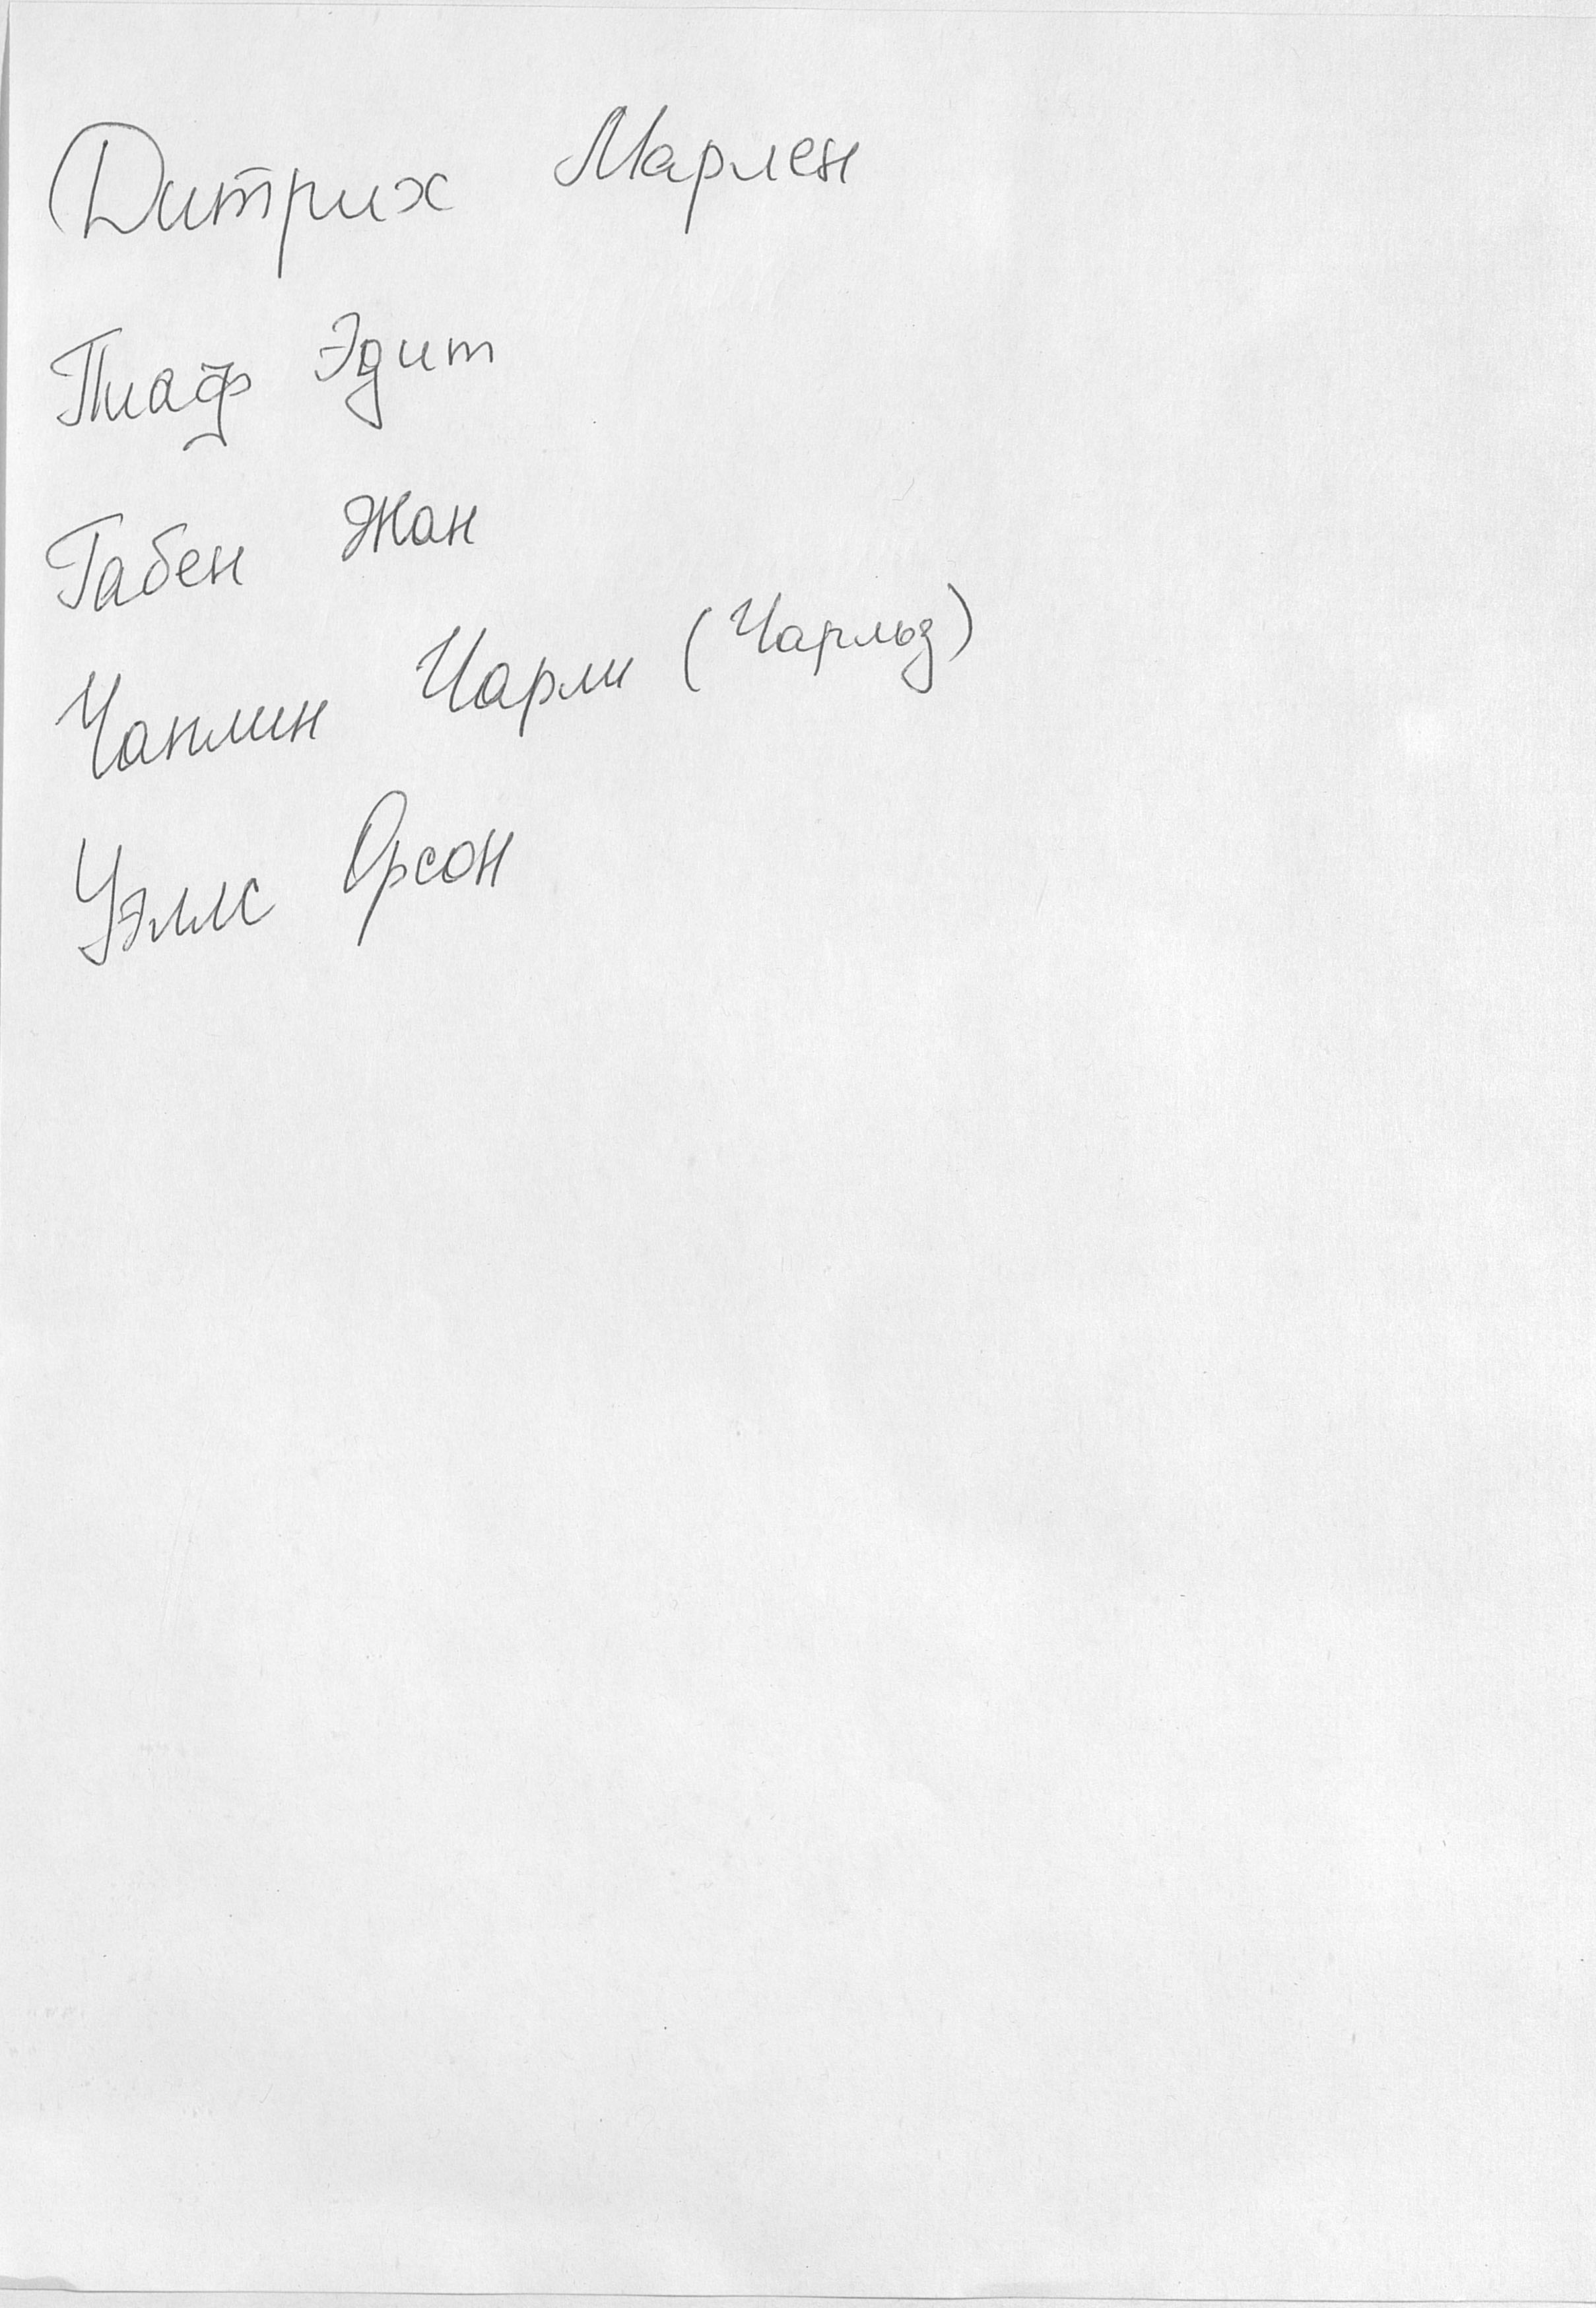 Дитрих Марлен
Пиаф Эдит
Габен Жан
Чаплин Чарли (Чарльз)
Уэллс Орсон